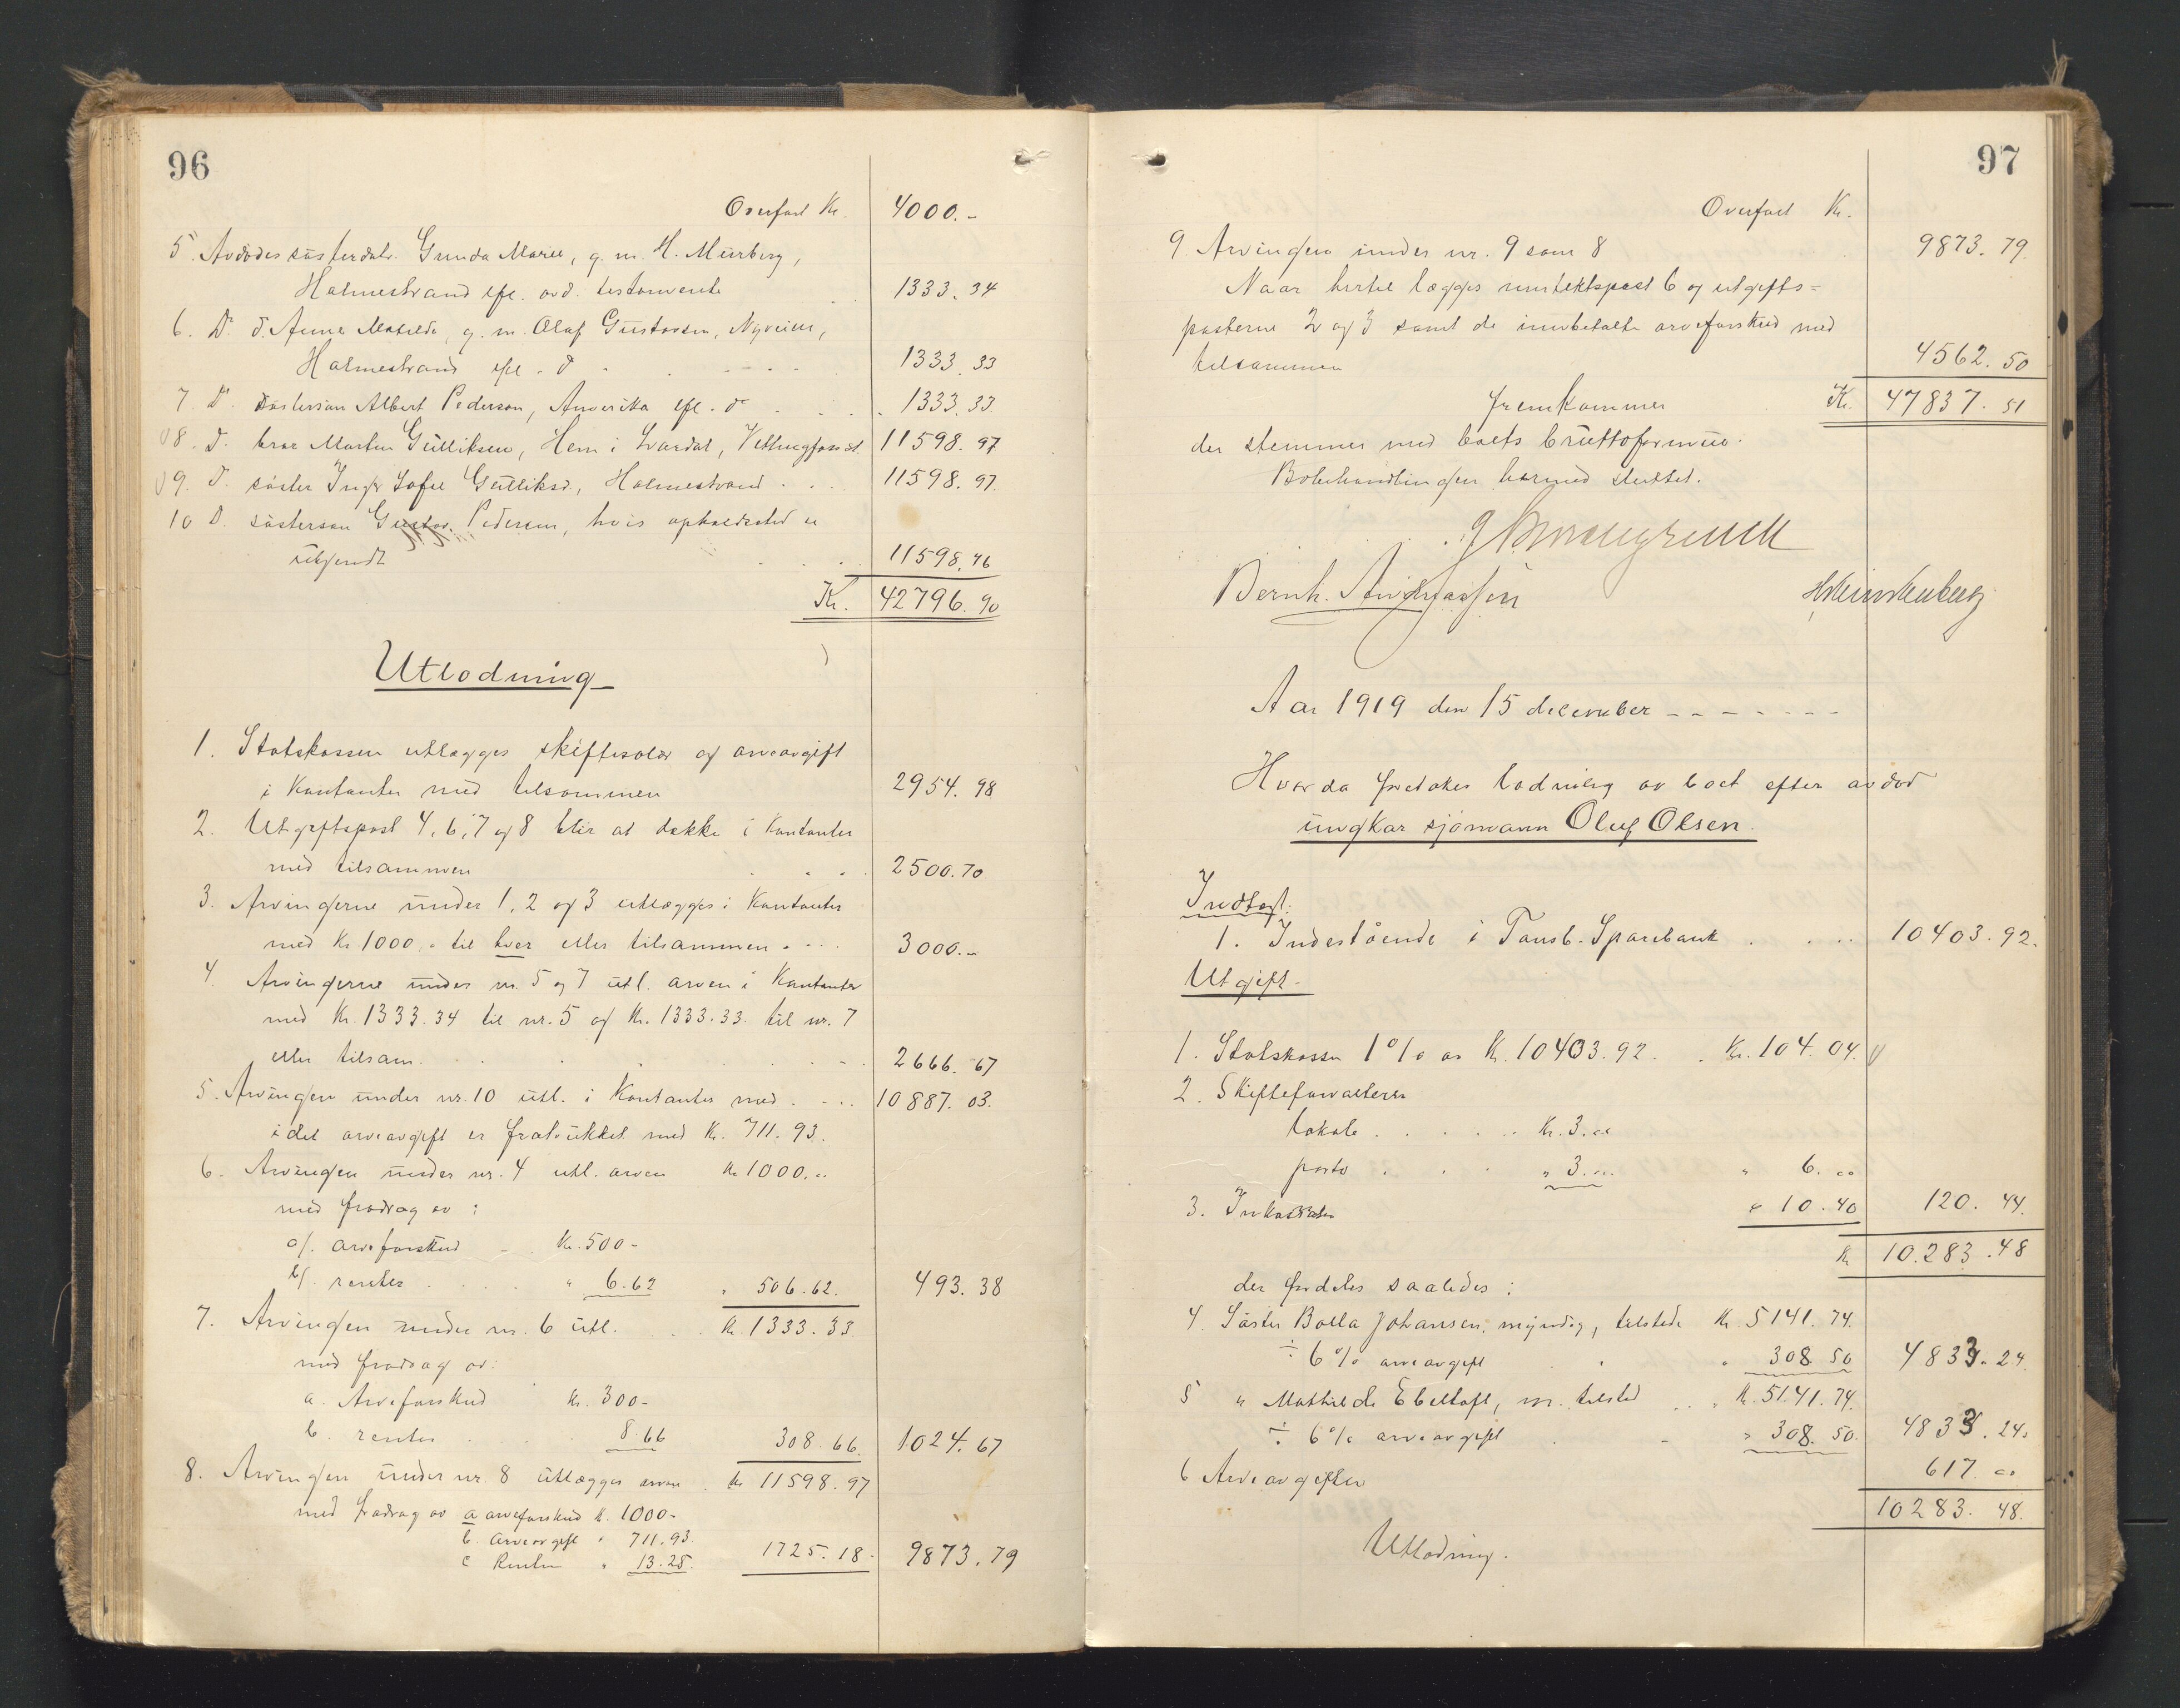 96
Overført Kr. 4000.-
5. Avdødes søsterdatr. Gunda Marie, g. m. H. Mürberg,
Holmestrand efl. avd. testamente 1333.34
6. Do. d. Anne Matilde, g. m. Olaf Gustavsen, Nyveien,
Holmestrand efl. do 1333.33
7. Do. søstersøn Albert Pedersen, Amerika efl. do 1333.33.
8. d. bror Martin Gulliksen, Hem i Lardal, 11598.97
9. d. søster Inger Sofie Gulliksd., Holmestrand 11598.97
10 d. søstersøn Pedersen, hvis opholdssted er
ukjendt 11598.96
Kr. 42796.90
Utlodning
1. Statskassen utlægges skiftesalær og arveavgift
i Kontanter med tilsammen 2954.98
2. Utgiftspost 4, 6, 7 og 8 blir at dække i Kontanter
med tilsammen 2500.70
3. Arvingerne under 1, 2 og 3 utlægges i Kontanter
med Kr. 1000.- til hver eller tilsammen 3000.-
4. Arvingerne under nr. 5 og 7 utl. arven i Kontanter
med Kr. 1333.34 til nr. 5 og Kr. 1333.33. til nr. 7
eller tilsam. 2666.67
5. Arvingen under nr. 10 utl. i Kontanter med 10887.03.
idet arveavgift er fratrukket med Kr. 711.93.
6. Arvingen under nr. 4 utl. arven Kr 1000.-
med fradrag av :
a/. arveforskud Kr. 500-
b/. renter " 6.62 " 506.62. 493.38
7. Arvingen under nr. 6 utl. Kr. 1333.33
med fradrag av:
a. Arveforskud Kr. 300-
b. renter 8.66 308.66. 1024.67
8. Arvingen under nr. 8 utlægges arven Kr 11598.97
med fradrag av a arveforskud K. 1000-
b. arveavgift " 711.93
c Renter " 13.25. 1725.18. 9873.79
97
Overført Kr.
9. Arvingen under nr. 9 som 8 9873.79.
Naar hertil lægges inntektspost 6 og utgifts=
posterne 2 og 3 samt de innbetalte arveforskud med
tilsammen 4562.50
fremkommer Kr. 47837.51
der stemmer med boets bruttoformue.
Bobehandlingen hermed sluttet.
Bernh.
Aar 1919 den 15 december - - - - - - -
Hvorda foretokes lodning av boet efter avdød
ungkar sjømann Oluf Olsen.
Indtægt:
1. Indestående i Tønsb. Sparebank 10403.92.
Utgift-
1. Statskassen 1% av Kr. 10403.92. Kr. 104.04.
2. Skifteforvalteren
lokale Kr. 3.00
porto " 3.00 " 6.00
3. " 10.40 120.44
Kr 10.283.48
der fordeles saaledes :
4. Søster Bolla Johansen, myndig, tilstede Kr. 5141.74.
÷ 6% arveavgift " 308.50 4833.24.
5 " Mathilde Ebeltoft, m. tilsted Kr. 5141.74.
÷ 6% arveavgift " 308.50. 4833.24.
6 Arveavgiften 617.00
10283.48.
Utlodning.